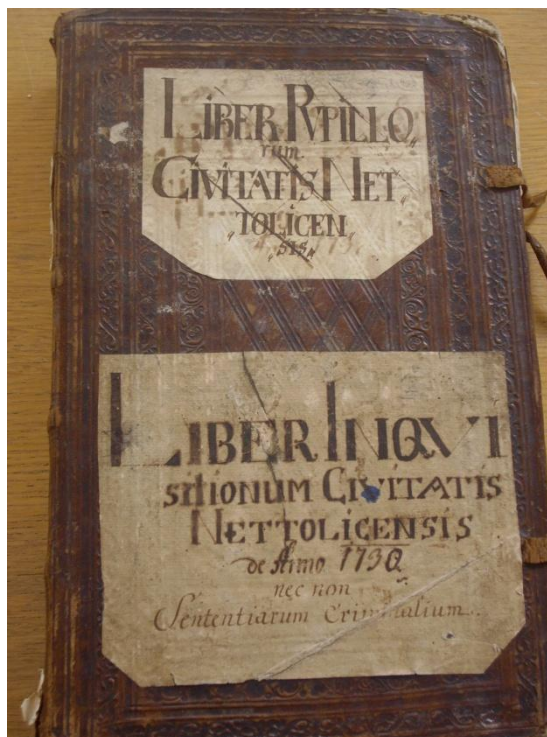 LIBER PVPILLO„
rum
CIVITATIS NET„
„TOLICEN
„SIS„
LIBER INQVI
sitionum CIVITATIS
NETTOLICENSIS
de Anno 1730
nec non
Sententiarum Criminalium.